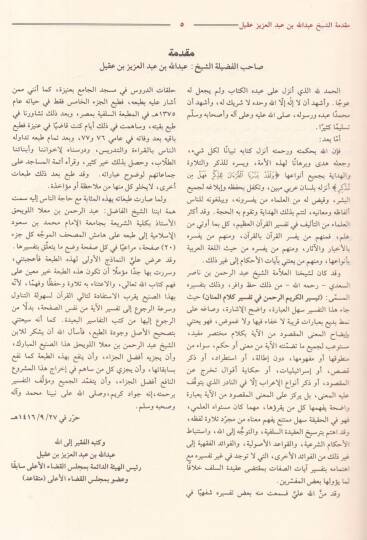 مقدمة الشيخ عبدالله بن عبد العزيز عقيل
٥
مقدمة
صاحب الفضيلة الشيخ: عبدالله بن عبد العزيز بن عقيل
الحمد لله الذي أنزل على عبده الكتاب ولم يجعل له
عوجًا. وأشهد أن لا إله إلا الله وحده لا شريك له، وأشهد أن
محمدًا عبده ورسوله، صلى الله عليه وعلى آله وأصحابه وسلّم
تسليمًا كثيرًا.
أمّا بعد:
فإن الله بحكمته ورحمته أنزل كتابه تبيانًا لكل شيء،
وجعله هدى وبرهانًا لهذه الأمة، ويسره للذكر والتلاوة
والهداية بجميع أنواعها ﴿وَلَقَدْ يَسَّرْنَا الْقُرْآنَ لِلذِّكْرِ فَهَلْ مِن
مُّدَّكِرٍ﴾ أنزله بلسان عربي مبين، وتكفل بحفظه وإبلاغه لجميع
البشر، وقيض له من العلماء من يفسرونه، ويبلغونه للناس
ألفاظه ومعانيه، لتتم بذلك الهداية وتقوم به الحجة. وقد أكثر
العلماء من التأليف في تفسير القرآن العظيم، كل بما أوتي من
علم، فمنهم من يفسر القرآن بالقرآن، ومنهم من يفسره
بالأخبار والآثار، ومنهم من يفسره من حيث اللغة العربية
بأنواعها، ومنهم من يعتني بآيات الأحكام إلى غير ذلك.
وقد كان لشيخنا العلامة الشيخ عبد الرحمن بن ناصر
السعدي - رحمه الله - من ذلك حظ وافر، وذلك بتفسيره
المسمّى: (تيسير الكريم الرحمن في تفسير كلام المنان) حيث
جاء هذا التفسير سهل العبارة، واضح الإشارة، وصاغه على
نمط بديع بعبارات قريبة لا خفاء فيها ولا غموض، فهو يعتني
بإيضاح المعنى المقصود من الآية بكلام مختصر مفيد،
مستوعب لجميع ما تضمنته الآية من معنى أو حكم، سواء من
منطوقها أو مفهومها، دون إطالة، أو استطراد، أو ذكر
قصص، أو إسرائيليات، أو حكاية أقوال تخرج عن
المقصود، أو ذكر أنواع الإعراب إلّا في النادر الذي يتوقّف
عليه المعنى، بل يركز على المعنى المقصود من الآية بعبارة
واضحة يفهمها كل من يقرؤها، مهما كان مستواه العلمي،
فهو في الحقيقة سهل ممتنع يفهم معناه من مجرّد تلاوة لفظه،
وقد اهتم بترسيخ العقيدة السلفية، والتوجّه إلى الله، واستنباط
الأحكام الشرعية، والقواعد الأصولية، والفوائد الفقهية إلى
غير ذلك من الفوائد الأخرى، التي لا توجد في غير تفسيره مع
اهتمامه بتفسير آيات الصفات بمقتضى عقيدة السلف خلافًا
لما يؤولها بعض المفسرين.
وقد منّ الله عليّ فسمعت منه بعض تفسيره شفهيًا في
حلقات الدروس في مسجد الجامع بعنيزة، كما أنني ممن
أشار عليه بطبعه، فطبع الجزء الخامس فقط في حياته عام
١٣٧٥هـ في المطبعة السلفية بمصر، وبعد ذلك تشاورنا في
طبع بقيته، وساهمت في ذلك أيام كنت قاضيًا في عنيزة فطبع
باقيه بعد وفاته في عامي ٧٦ و٧٧، وبعد تمام طبعه تداوله
الناس بالقراءة والتدريس، ودرسناه لإخواننا وأبنائنا
الطلّاب، وحصل بذلك خير كثير، وقرأه أئمة المساجد على
جماعاتهم لوضوح عباراته. وقد طبع بعد ذلك طبعات
أخرى، لا يخلو كل منها من ملاحظة أو مؤاخذة.
ولما صارت طبعاته بهذه المثابة مع حاجة الناس إليه سمت
همة ابننا الشيخ الفاضل: عبد الرحمن بن معلا اللويحق
الأستاذ بكلية الشريعة بجامعة الإمام محمد بن سعود
الإسلامية إلى طبعه على هامش المصحف الموجّه كل جزء
(٢٠) صفحة، مراعيًا في كل صفحة وضع ما يتعلّق بتفسيرها.
وقد عرض عليّ النماذج الأولى لهذه الطبعة فأعجبتني،
وسررت بها جدًا مؤملًا أن تكون هذه الطبعة خير معين على
فهم كتاب الله تعالى، والاعتناء به تلاوة وحفظًا وفهمًا، لأنّه
بهذا الصنيع يقرب الاستفادة لتالي القرآن لسهولة التناول
وسرعة الرجوع إلى تفسير الآية من نفس الصفحة، بدلًا من
الرجوع إليها من كتب التفاسير البعيدة. كما أنه سيعتني
بتصحيح الأصل وجودة الطبع، فأسأل الله أن يشكر للابن
الشيخ عبد الرحمن بن معلا اللويحق هذا الصنيع المبارك،
وأن يجزيه أفضل الجزاء، وأن ينفع بهذه الطبعة كما نفع
بسابقاتها، وأن يجزي كل من ساهم في إخراج هذا المشروع
النافع أفضل الجزاء، وأن يتغمّد الجميع ومؤلّف التفسير
برحمته، إنه جواد كريم، وصلى الله على نبينا محمد وآله
وصحبه وسلم.
حرّر في ١٤١٦/٩/٢٧هـ
وكتبه الفقير إلى الله
عبدالله بن عبد العزيز بن عقيل
رئيس الهيئة الدائمة بمجلس القضاء الأعلى سابقًا
وعضو بمجلس القضاء الأعلى (متقاعد)